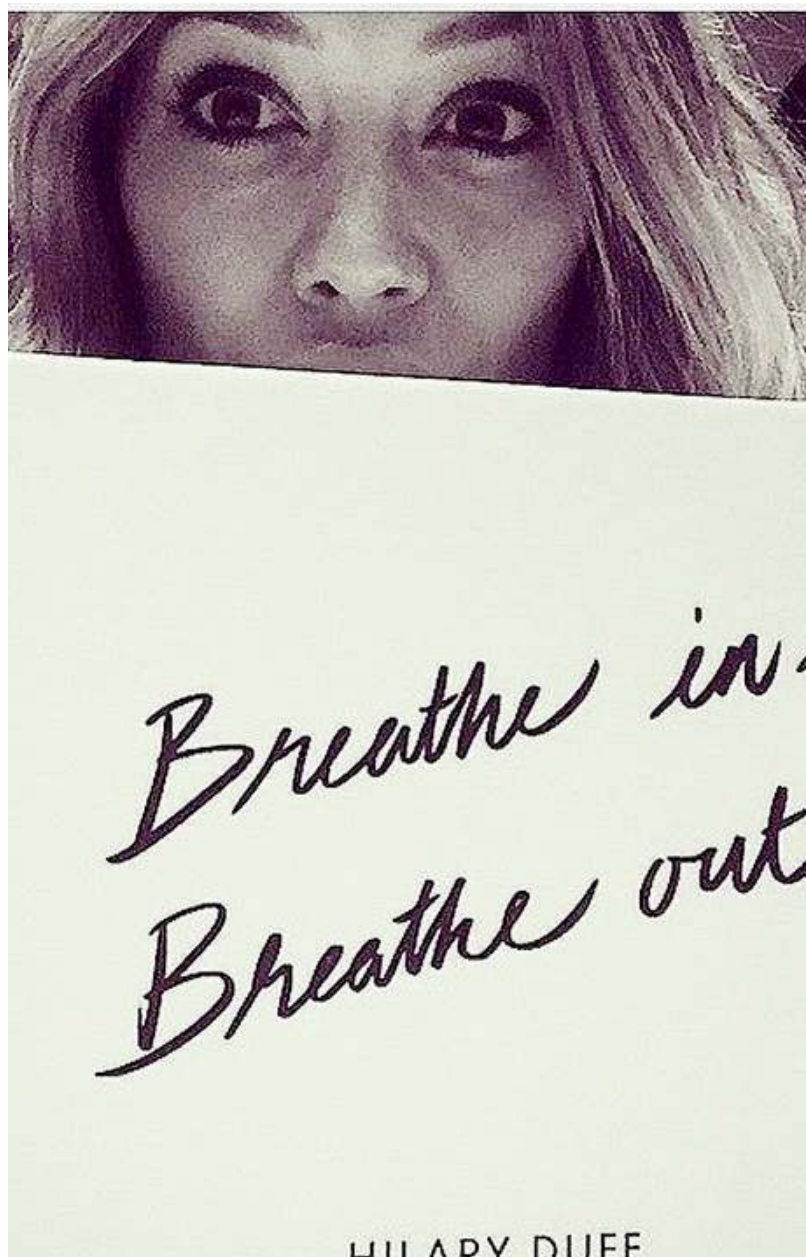 Breathe in.
Breathe out
HILARY DUFF